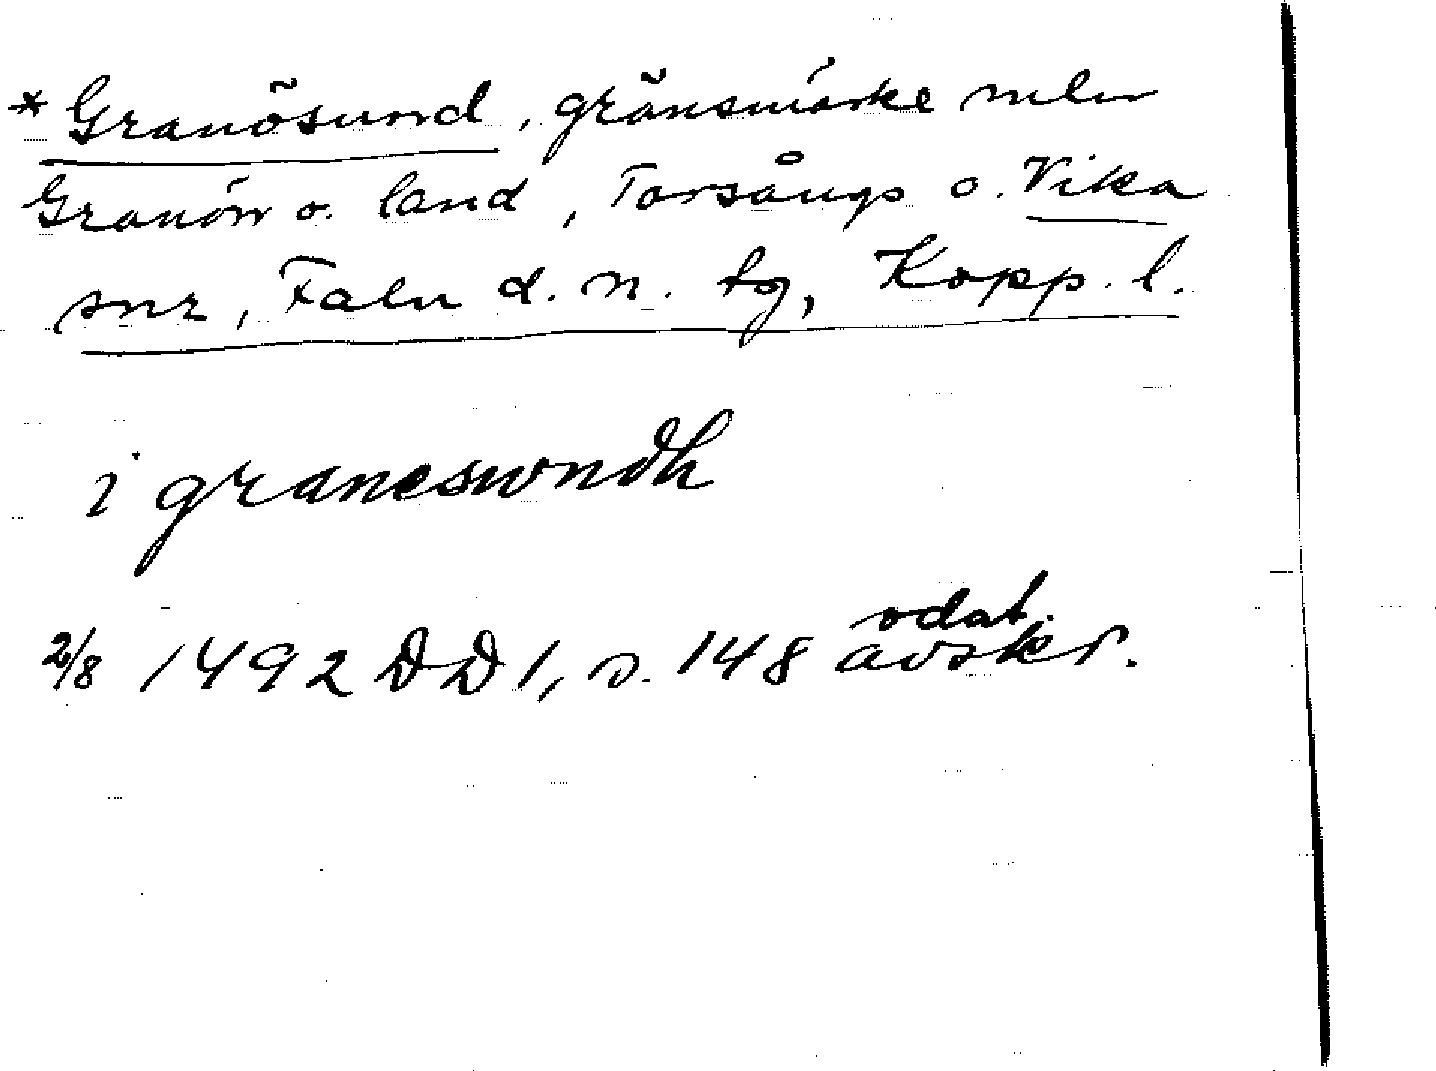 * Granösund, gränsmärke mln
Granön o. land, Torsångs o. Vika
snr, Falu d. n. tg, Kopp. l.
i graneswndh
2/8 1492 DD 1, s. 148 odat. avskr.